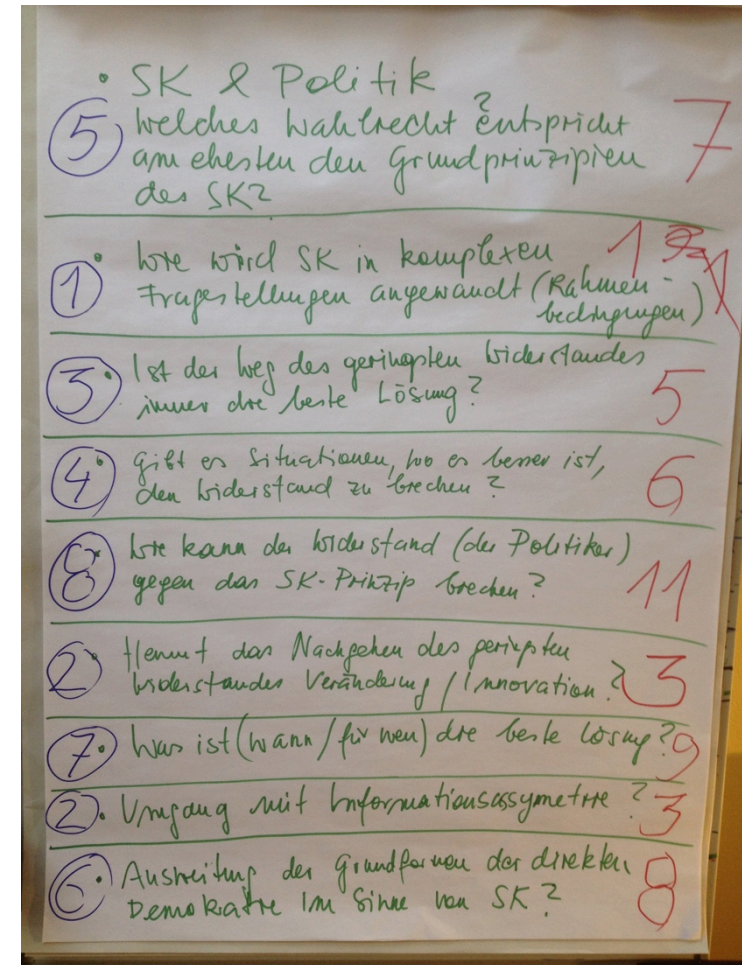 • SK & Politik
⑤ Welches Wahlrecht ? entspricht 7
am ehesten den Grundprinzipien
des SK?
① • Wie wird SK in komplexen 1
Fragestellungen angewandt (Rahmen-
bedingungen)
③ • Ist der Weg des geringsten Widerstandes
immer die beste Lösung? 5
④ • Gibt es Situationen, wo es besser ist, 6
den Widerstand zu brechen?
⑧ • Wie kann der Widerstand (der Politiker)
gegen das SK-Prinzip brechen? 11
② • Hemmt das Nachgehen des geringsten
Widerstandes Veränderung / Innovation? 3
⑦ • Was ist (wann / für wen) die beste Lösung? 9
② • Umgang mit Informationsassymetrie? 3
⑥ • Ausweitung der Grundformen der direkten 8
Demokratie im Sinne von SK?